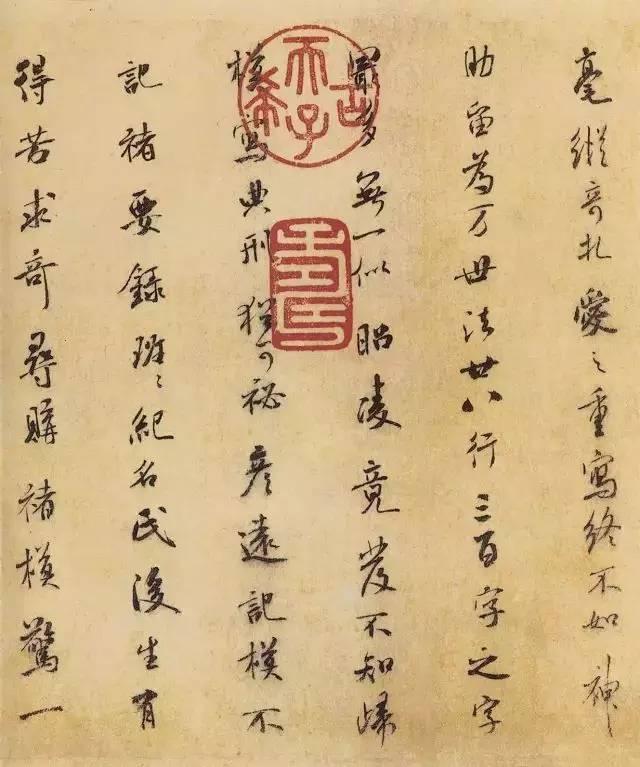 毫縱奇札愛之重寫終不如神
助留為万世法廿八行三百字之字
最多無一似昭陵竟發不知歸
模寫典刑猶可祕彦遠記模不
記褚要録班〻紀名氏後生有
得苦求奇尋購褚模驚一
古希天子
壽